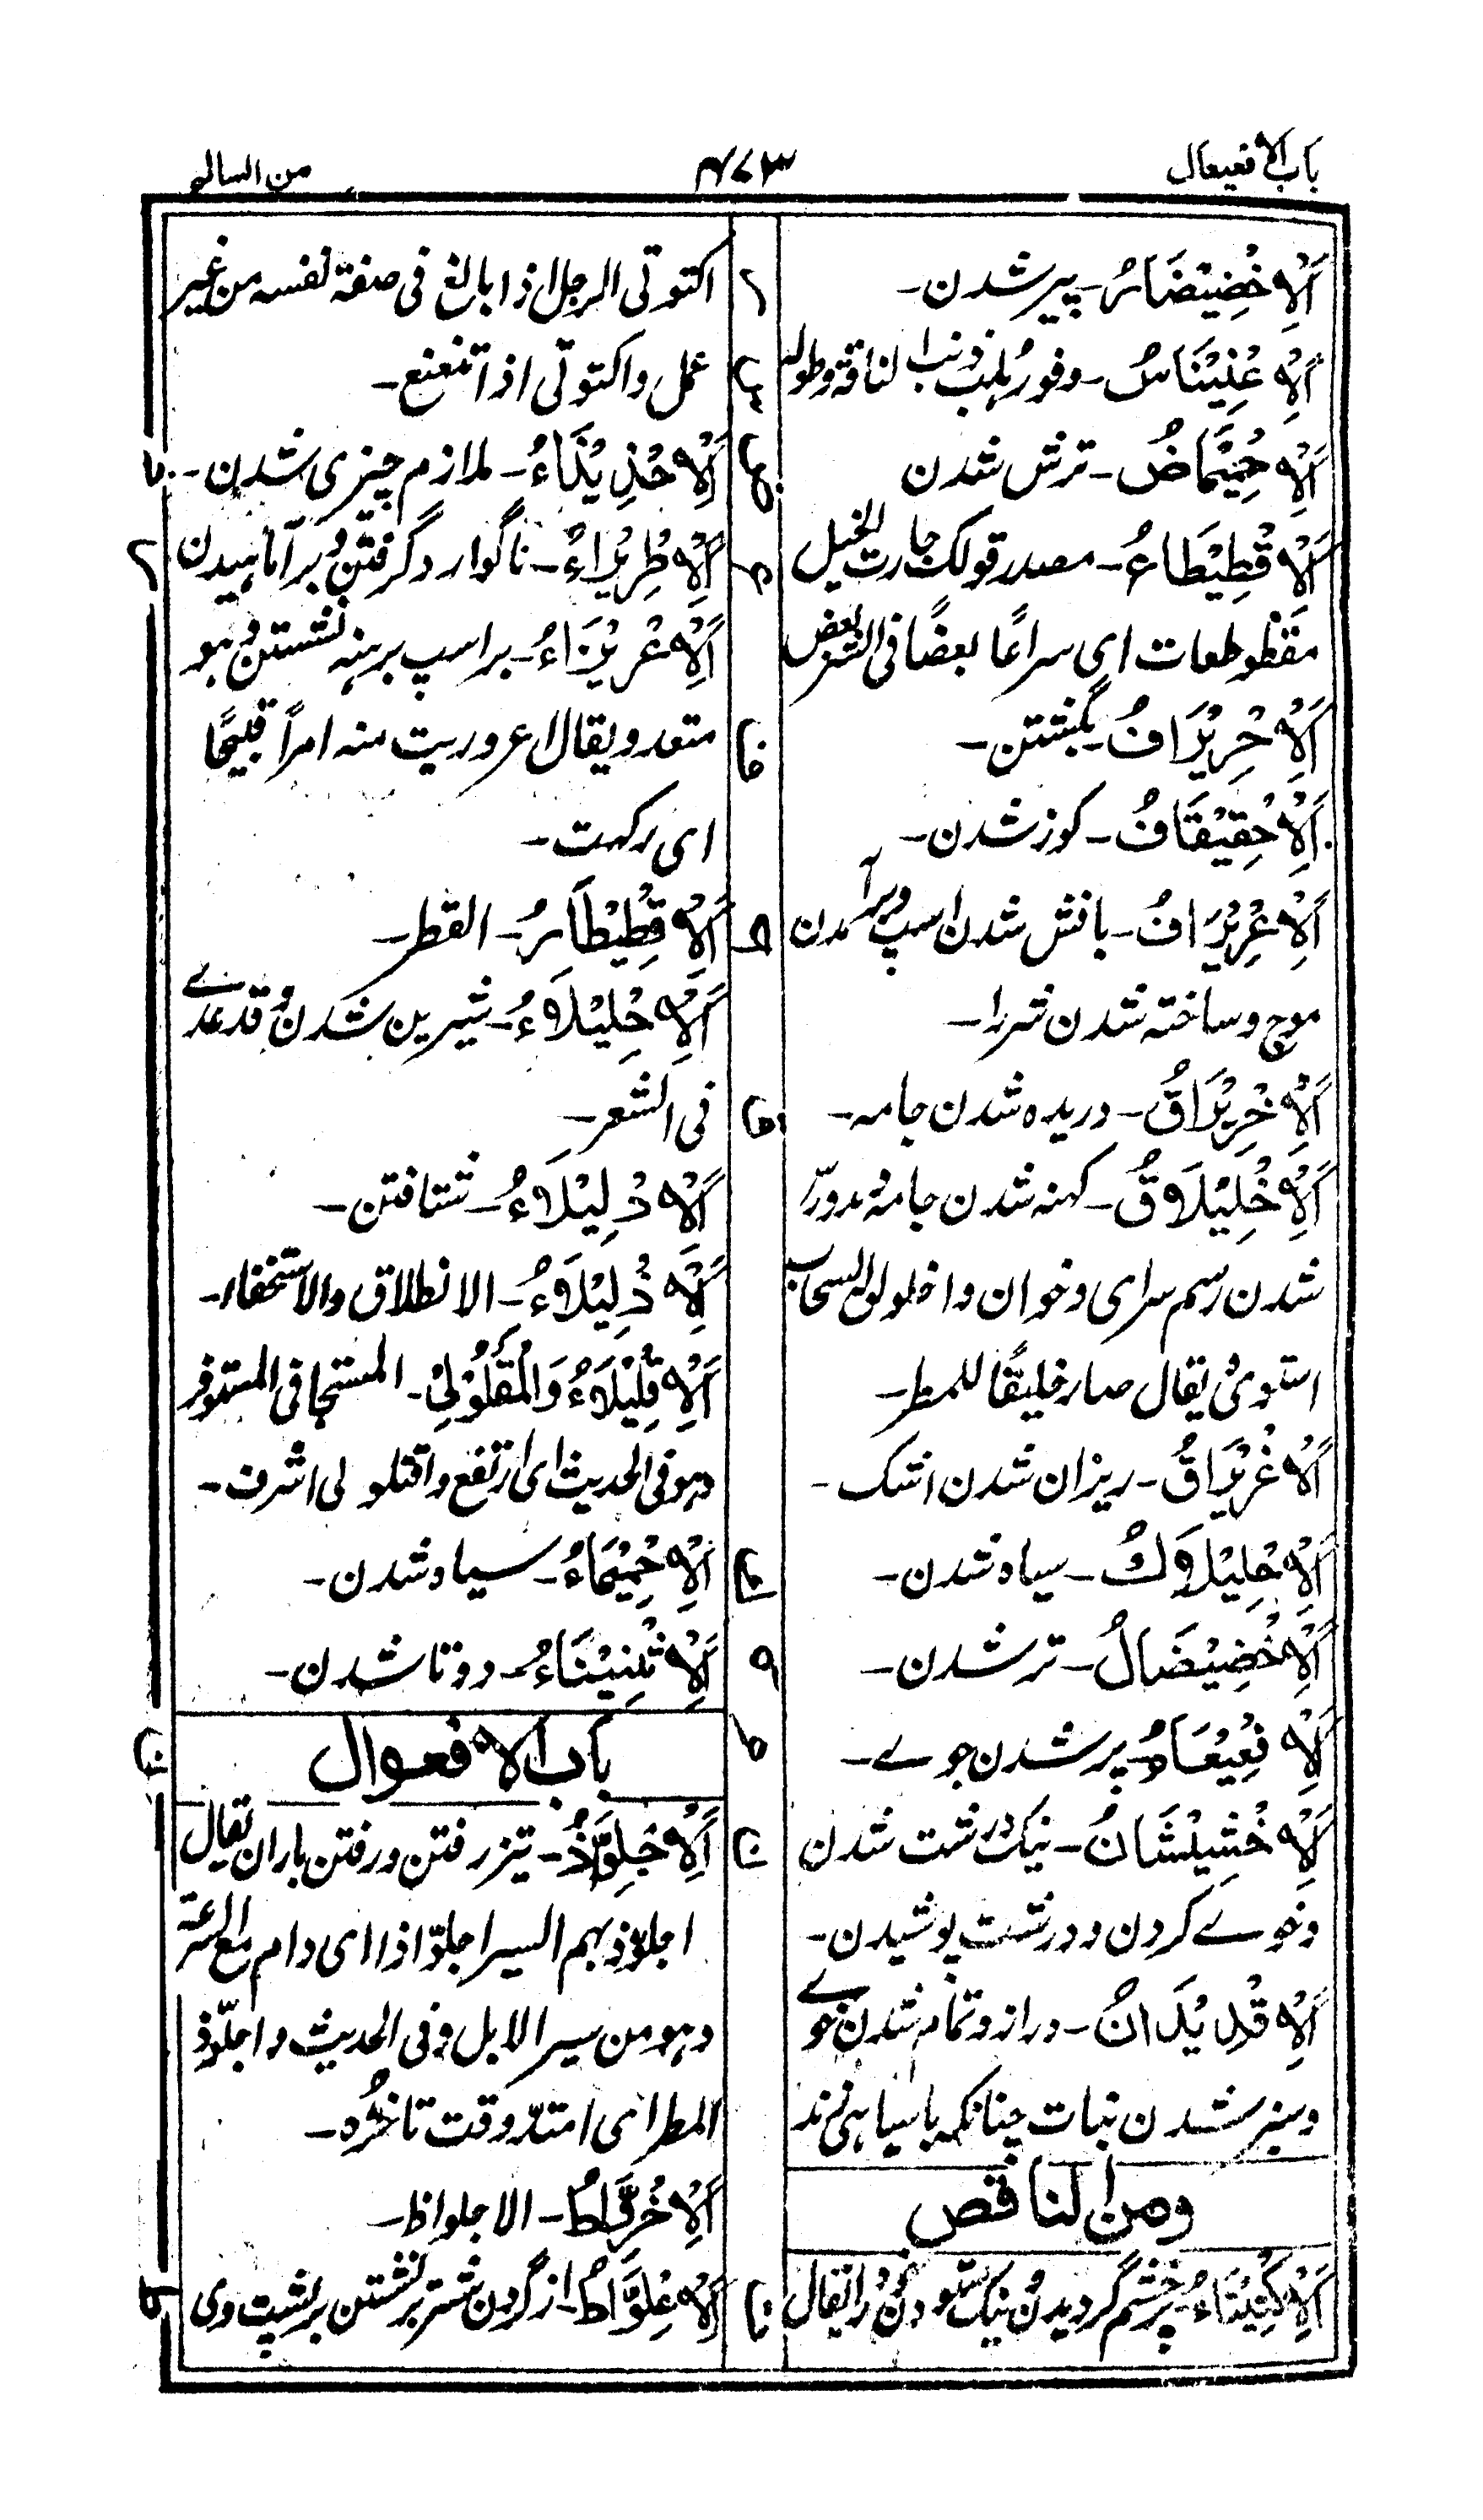 باب الافعیعال
۴۷۳
من السالم
اَلْاِخْضِیْضَارُ۔ پیر شدن۔
اَلْاِعْنِیْنَاسُ۔ وفور ہلب ذنب الناقة وطوله
اَلْاِحْمِیْمَاضُ۔ ترش شدن
اَلْاِقْطِیْطَاعُ۔ مصدر قولک جارت الخیل
مقطوطعات ای سراعًا بعضًا فی اثر بعض
اَلْاِحْرِیْرَافُ۔ بگشتن۔
اَلْاِحْقِیْقَافُ۔ کوز شدن۔
اَلْاِعْرِیْرَافُ۔ بافش شدن اسپ و برآمدن
موج و ساخته شدن شررا۔
اَلْاِخْرِیْرَاقُ۔ دریده شدن جامه۔
اَلْاِخْلِیْلَاقُ۔ کهنه شدن جامه و مدور
شدن رسم سرای و خوان و اخلولق السحاب
استوی یقال صار خلیقًا للمطر۔
اَلْاِغْرِیْرَاقُ۔ ریزان شدن اشک۔
اَلْاِحْلِیْلَاکُ۔ سیاه شدن۔
اَلْاِخْضِیْضَالُ۔ تر شدن۔
اَلْاِفْعِیْعَامُ۔ پر شدن جوے۔
اَلْاِخْشِیْشَانُ۔ نیک درشت شدن
و خوے کردن و درشت پوشیدن۔
اَلْاِغْدِیْدَانُ۔ دراز و تمام شدن موے
و سبز شدن نبات چنانکه باسیاهی زند
ومن الناقص
اَلْاِکْتِیْتَاءُ۔ پرخشم گردیدن و نیک ستودن خود را یقال
اکتوتی الرجل اذا بالغ فی صفة نفسه من غیر
عمل و اکتوتی اذا تنعنع۔
اَلْاِحْذِیْذَاءُ۔ ملازم چیزی شدن۔
اَلْاِطْرِیْرَاءُ۔ ناگوارد گرفتن و برآماہیدن
اَلْاِعْرِیْرَاءُ۔ بر اسپ برہنہ نشستن و ہو
متعد و یقال اعروریت منه امراً قبیحًا
ای رکبت۔
اَلْاِقْطِیْطَارُ۔ القطر۔
اَلْاِحْلِیْلَاءُ۔ شیرین شدن و قد عدے
فی الشعر۔
اَلْاِدْلِیْلَاءُ۔ شتافتن۔
اَلْاِذْلِیْلَاءُ۔ الانطلاق والاستخفاء۔
اَلْاِقْلِیْلَاءُ وَالْمُقْلَوْلِیْ۔ المستجافی المستوفز
وہو فی الحدیث ای ارتفع واقلولی اشرف۔
اَلْاِحْمِیْمَاءُ۔ سیاه شدن۔
اَلْاِثْنِیْنَاءُ۔ دوتا شدن۔
باب الافعوال
اَلْاِجْلِوَّاذُ۔ تیز رفتن و رفتن باران یقال
اجلوّذ بهم السیر اجلوّاذا ای دام مع السرعة
وہو من سیر الابل وفی الحدیث واجلوّذ
المطر ای امتدّ وقت تاخره۔
اَلْاِخْرِوَّاطُ۔ الاجلواظ۔
اَلْاِعْلِوَّاطُ۔ از گردن شتر برنشستن بر پشت وی